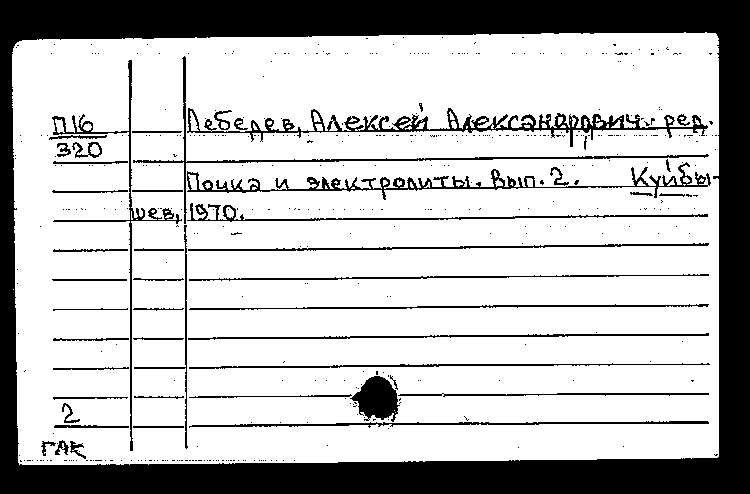 П16 Лебедев, Алексей Александрович. ред.
320
Почка и электролиты. Вып. 2. Куйбы-
шев, 1970.
2
ГАК